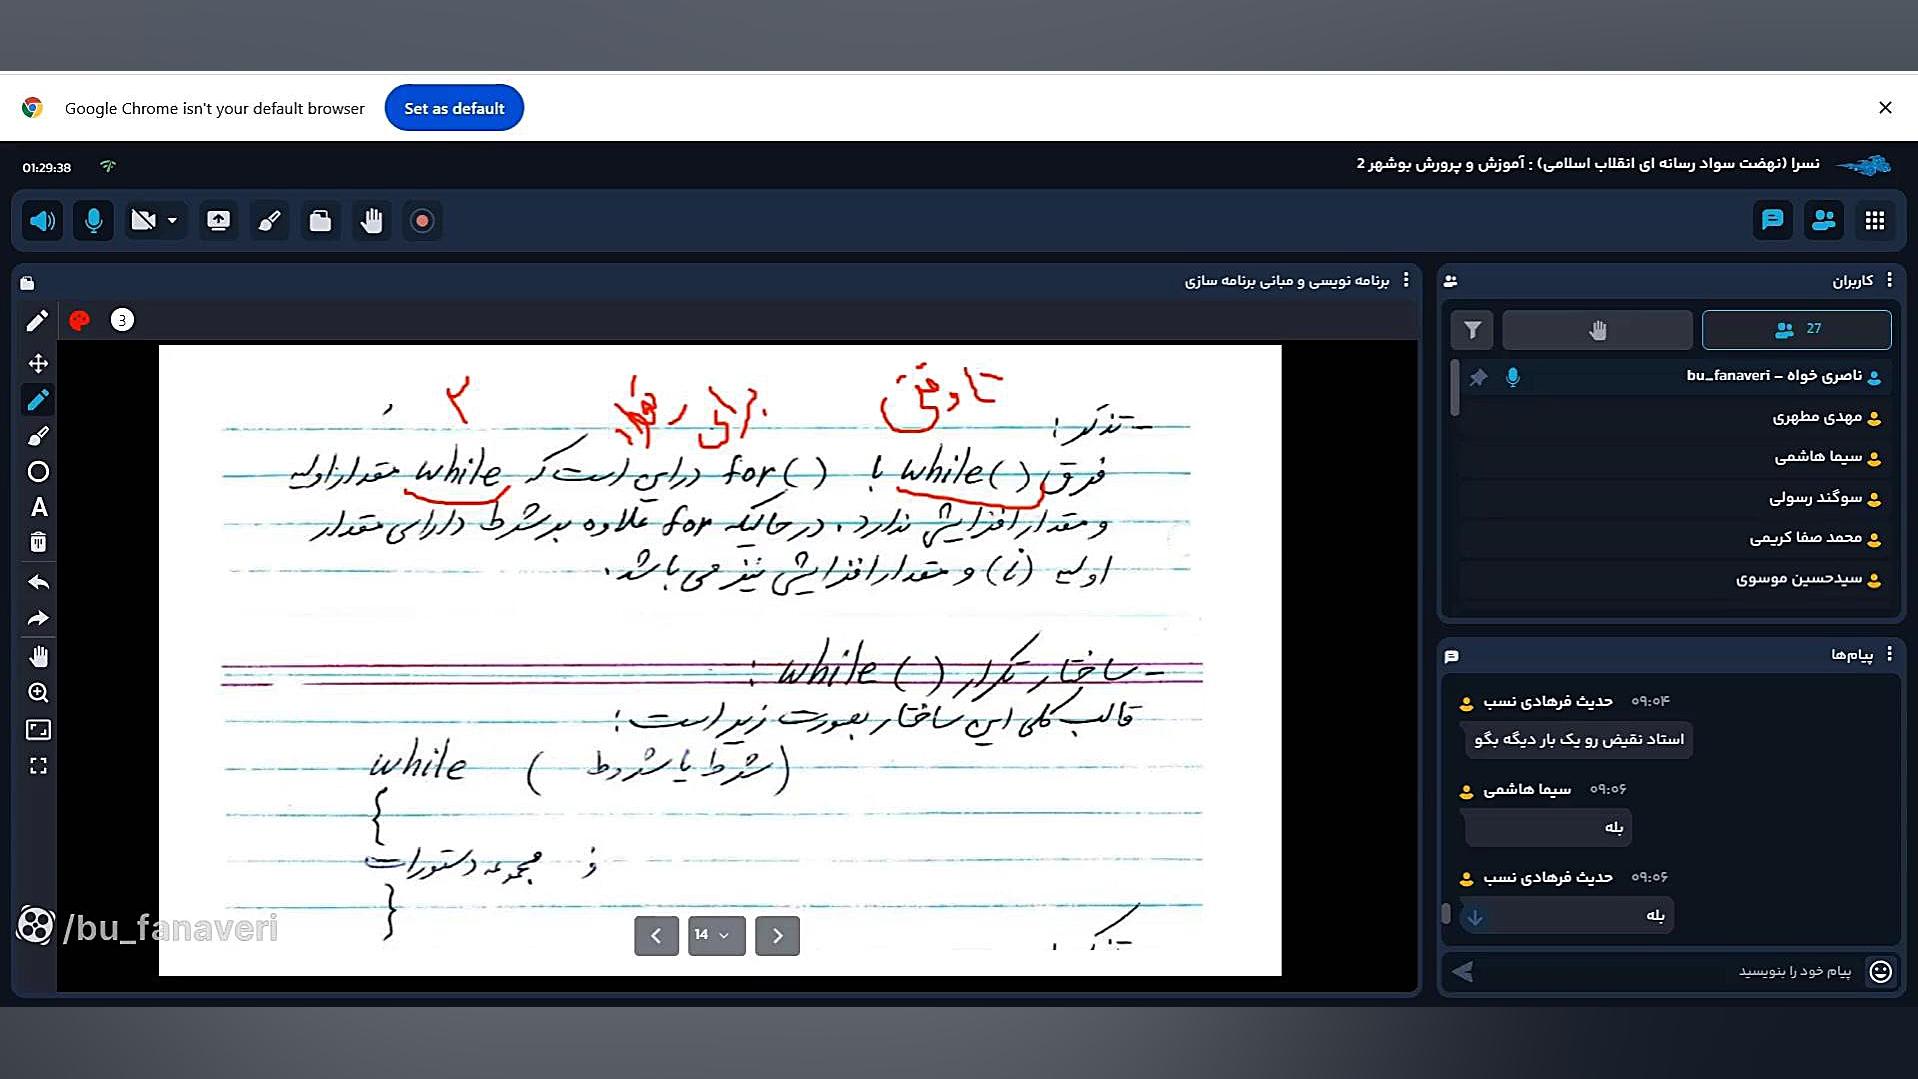 Google Chrome isn't your default browser
Set as default
01:29:38
نسرا (نهضت سواد رسانه ای انقلاب اسلامی) : آموزش و پرورش بوشهر 2
برنامه نویسی و مبانی برنامه سازی
3
تا وقتی
برای
- تذکر :
فرق while ( ) با for ( ) در این است که while مقدار اولیه
و مقدار افزایش ندارد . در حالیکه for علاوه بر شرط دارای مقدار
اولیه (i) و مقدار افزایش نیز می باشد .
- ساختار تکرار while ( ) :
قالب کلی این ساختار بصورت زیر است :
while ( شرط یا شروط )
{
مجموعه دستورات
}
14
/bu_fanaveri
کاربران
27
ناصری خواه – bu_fanaveri
مهدی مطهری
سیما هاشمی
سوگند رسولی
محمد صفا کریمی
سیدحسین موسوی
پیام‌ها
حدیث فرهادی نسب ۰۹:۰۴
استاد نقیض رو یک بار دیگه بگو
سیما هاشمی ۰۹:۰۶
بله
حدیث فرهادی نسب ۰۹:۰۶
بله
پیام خود را بنویسید